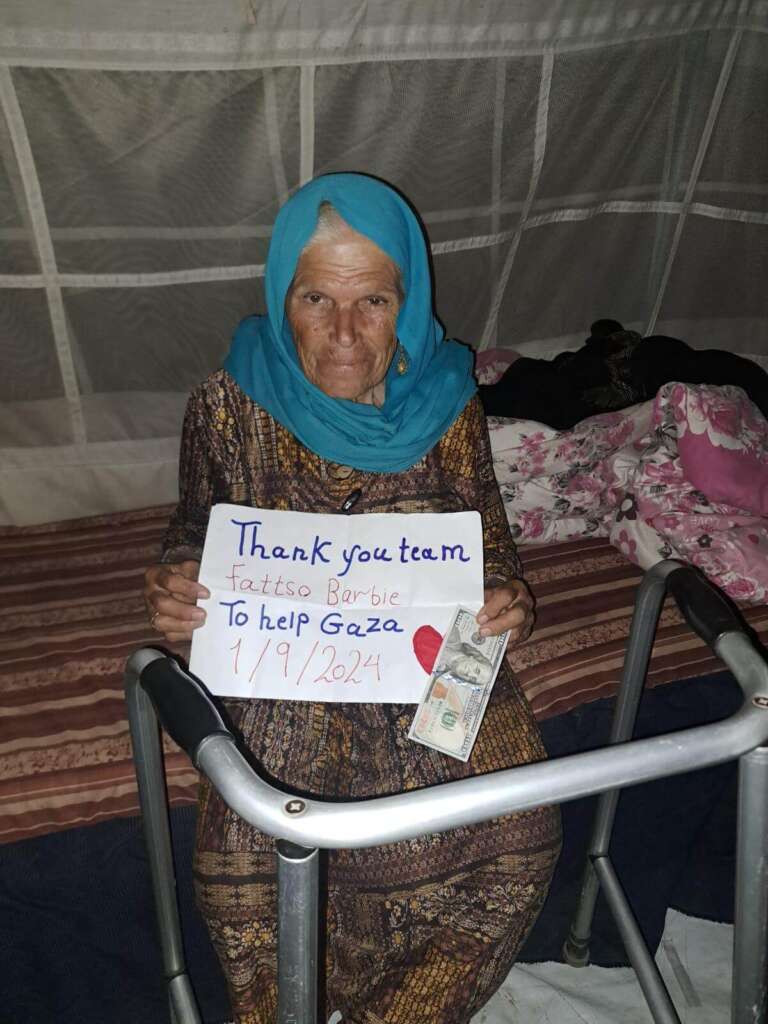 Thank you team
Fattso Barbie
To help Gaza
1/9/2024
100